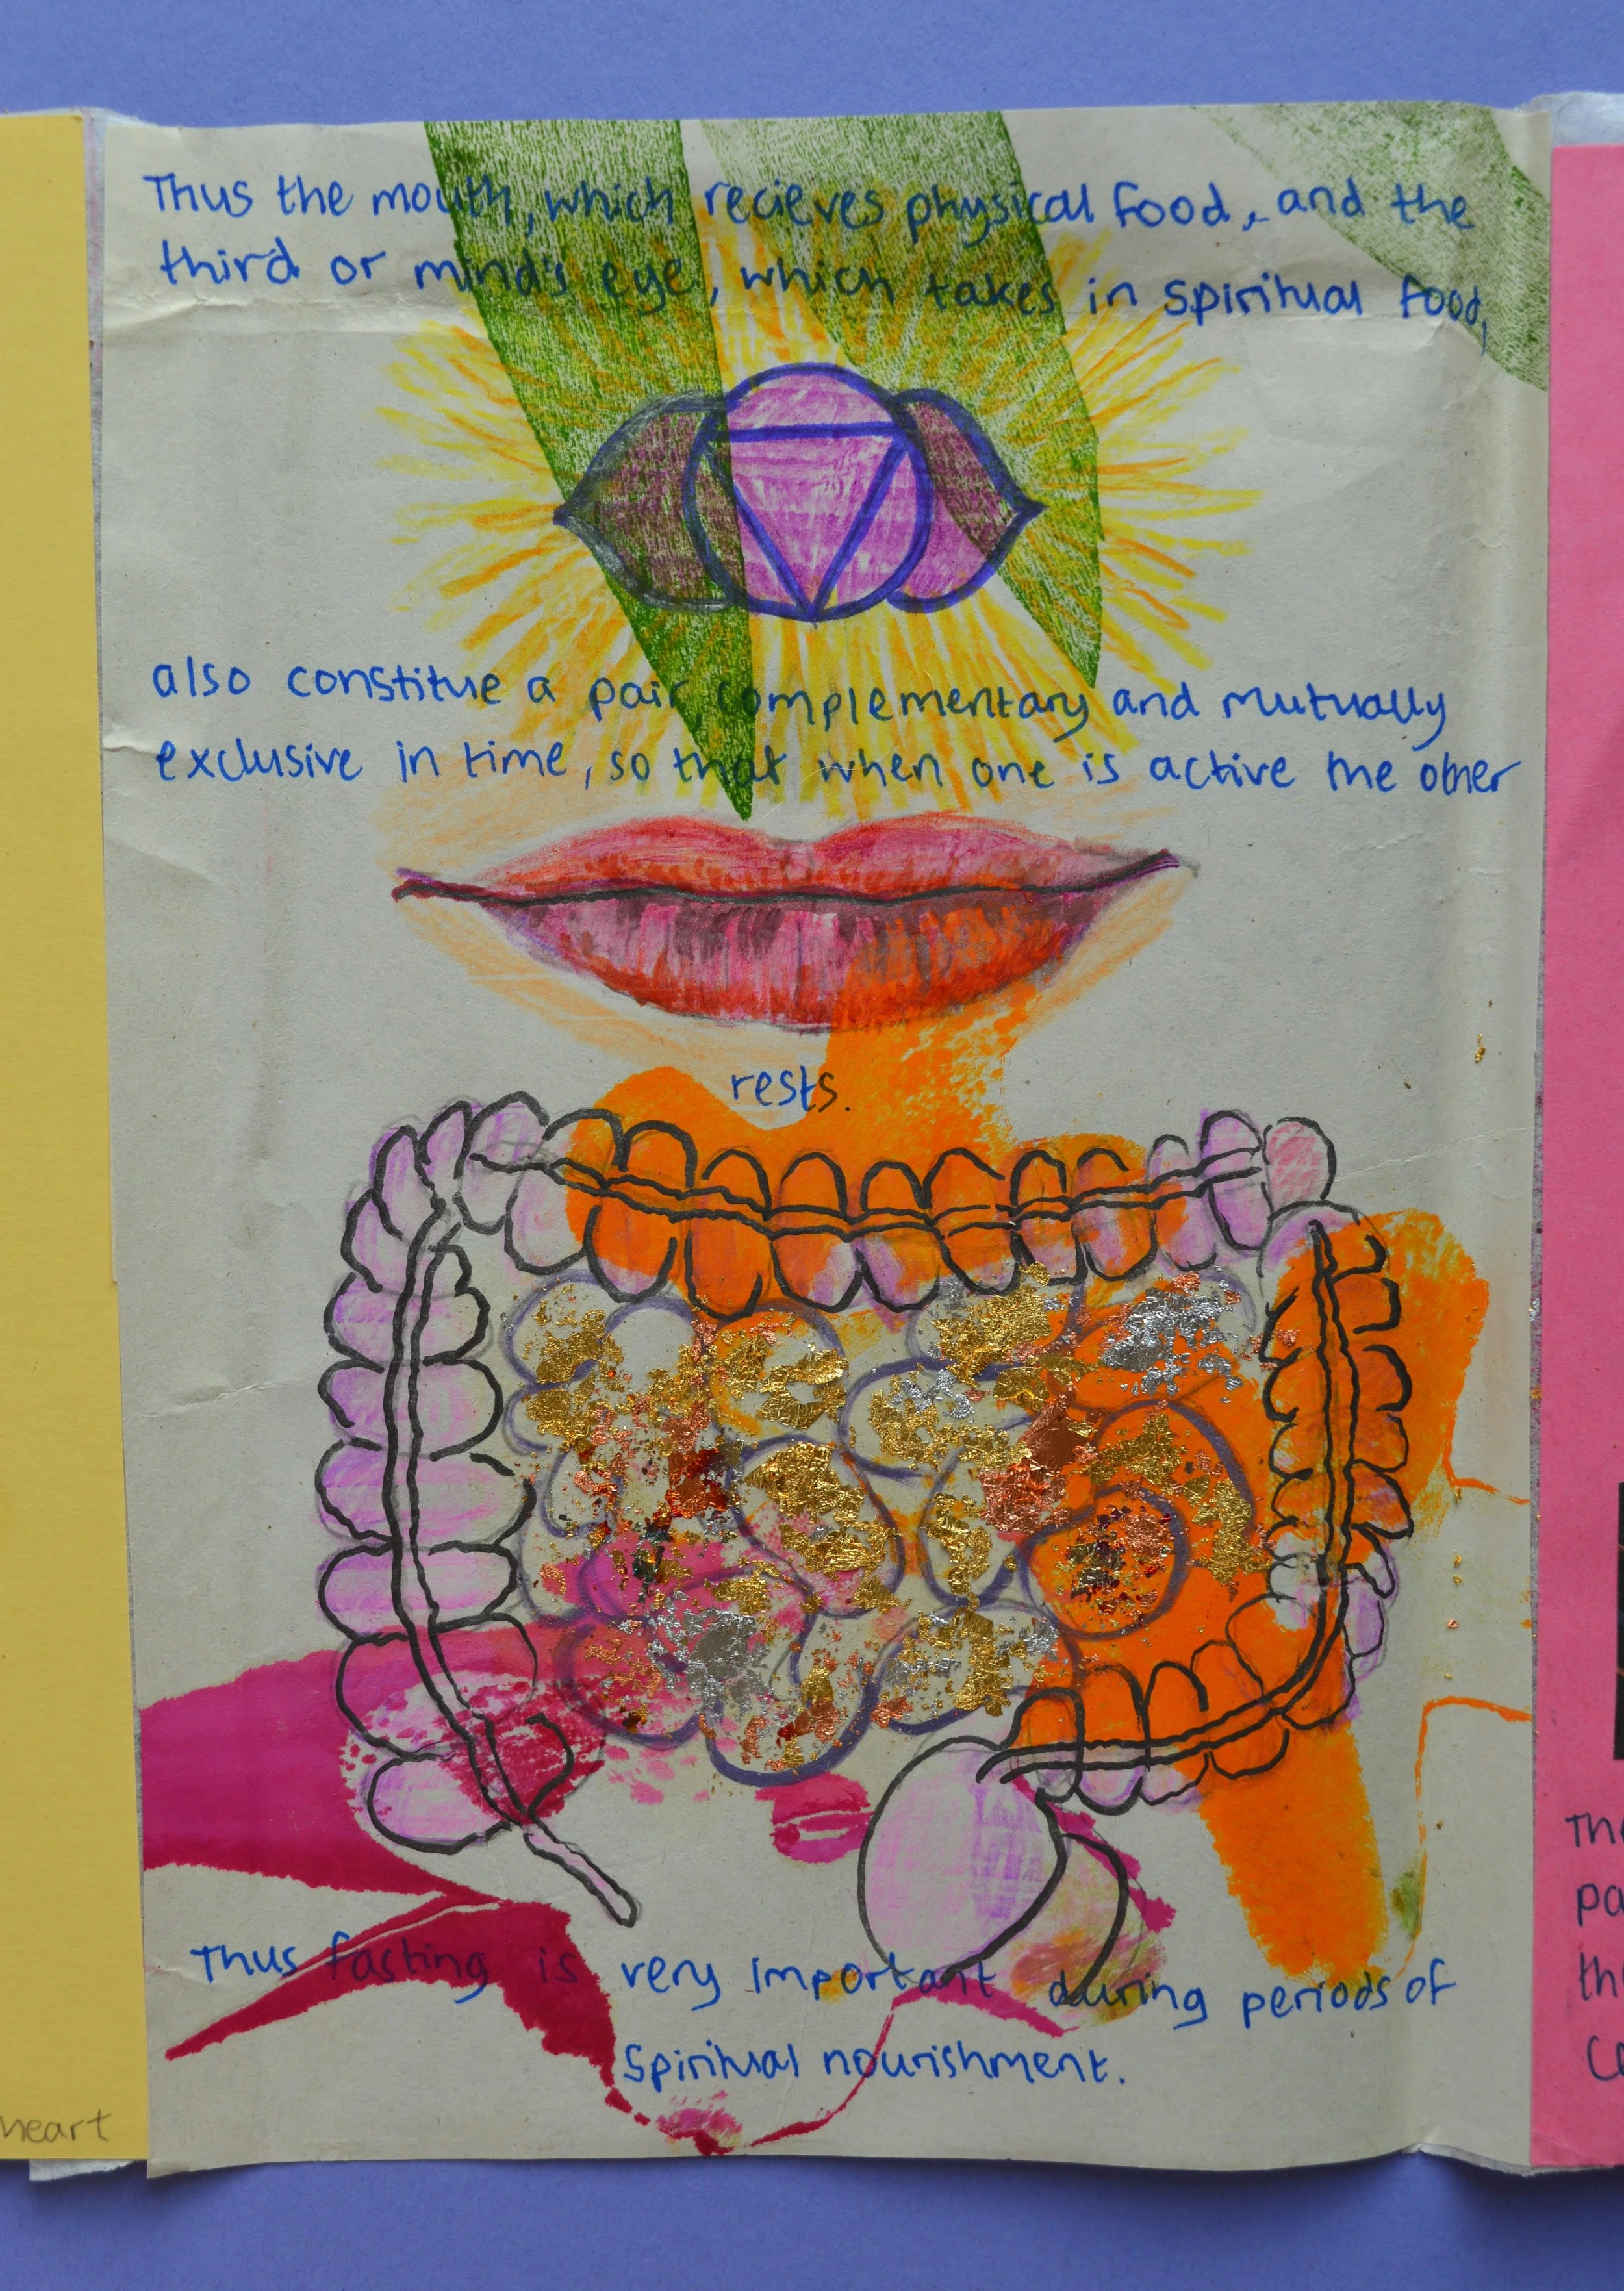 Thus the mouth, which recieves physical food, and the
third or mind's eye, which takes in spiritual food,
also constitue a pair, complementary and mutually
exclusive in time, so that when one is active the other
rests.
Thus fasting is very important during periods of
Spiritual nourishment.
heart